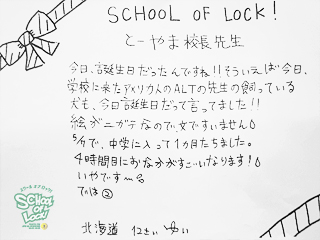 SCHOOL OF LOCK!
とーやま校長先生
今日、誕生日だったんですね!!そういえば今日、
学校に来たアメリカ人のALTの先生の飼っている
犬も、今日誕生日だって言ってました!!
絵がニガテなので、文ですいません
5分で、中学に入って1か月たちました。
4時間目におなかがすごいなります!
いやです
では
北海道 12さい ゆい
SCHOOL OF LOCK!